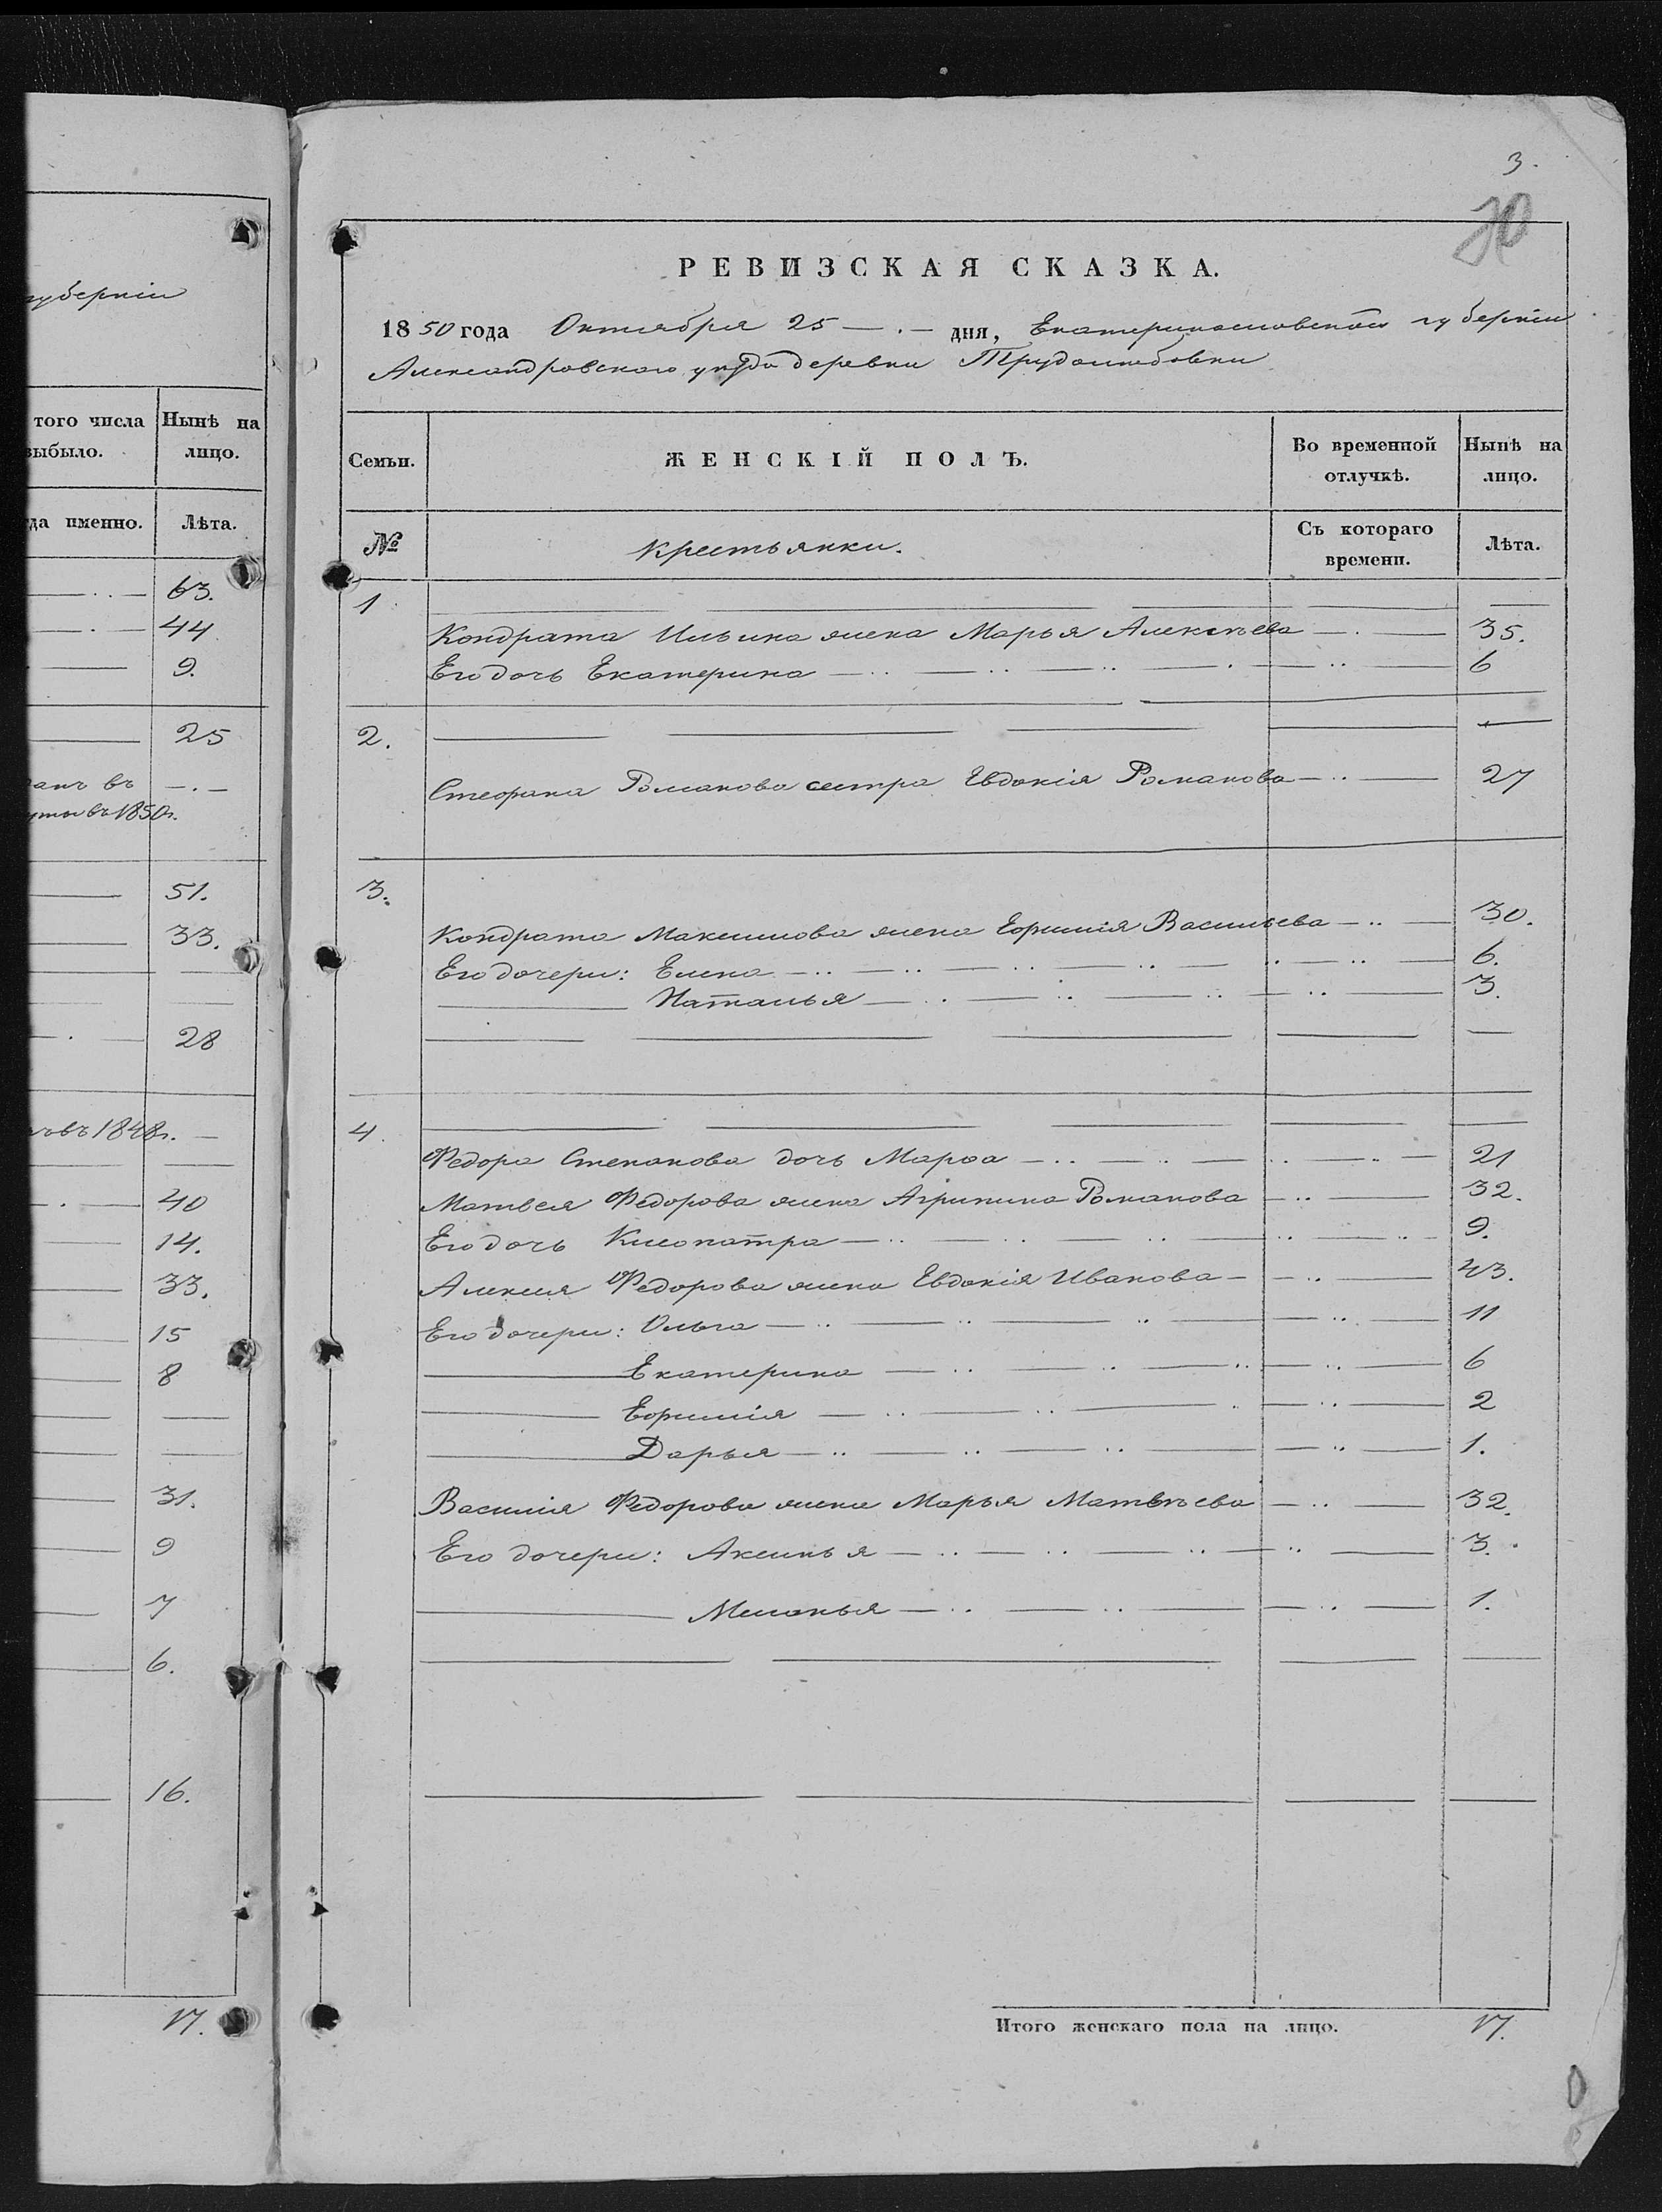 губерніи
того числа
выбыло.
Нынѣ на
лицо.
да именно.
Лѣта.
63.
44
9.
25
въ
въ 1850 г.
51.
33.
28
въ 1848 г.
40
14.
33.
15
8
31.
9
7
6.
16.
17.
3.
РЕВИЗСКАЯ СКАЗКА.
1850 года Октября 25 дня, Екатеринославской губерніи
Александровского уѣзда деревни Трудолюбовки
Семьи.
ЖЕНСКІЙ ПОЛЪ.
Во временной
отлучкѣ.
Нынѣ на
лицо.
№
Крестьянки.
Съ котораго
времени.
Лѣта.
1
Кондрата Ильина жена Марья Алексѣева 35.
Его дочь Екатерина 6
2.
Стефана Романова сестра Евдокія Романова 27
3.
Кондрата Максимова жена Ефимія Васильева 30.
Его дочери: Елена 6.
Наталья 3.
4.
Федора Степанова дочь Марфа 21
Матвея Федорова жена Агрипина Романова 32.
Его дочь Клеопатра 9.
Алексея Федорова жена Евдокія Иванова 43.
Его дочери: Ольга 11
Екатерина 6
Ефимія 2
Дарья 1.
Василія Федорова жена Марья Матвѣева 32.
Его дочери: Аксинья 3.
Меланья 1.
Итого женскаго пола на лицо. 17.